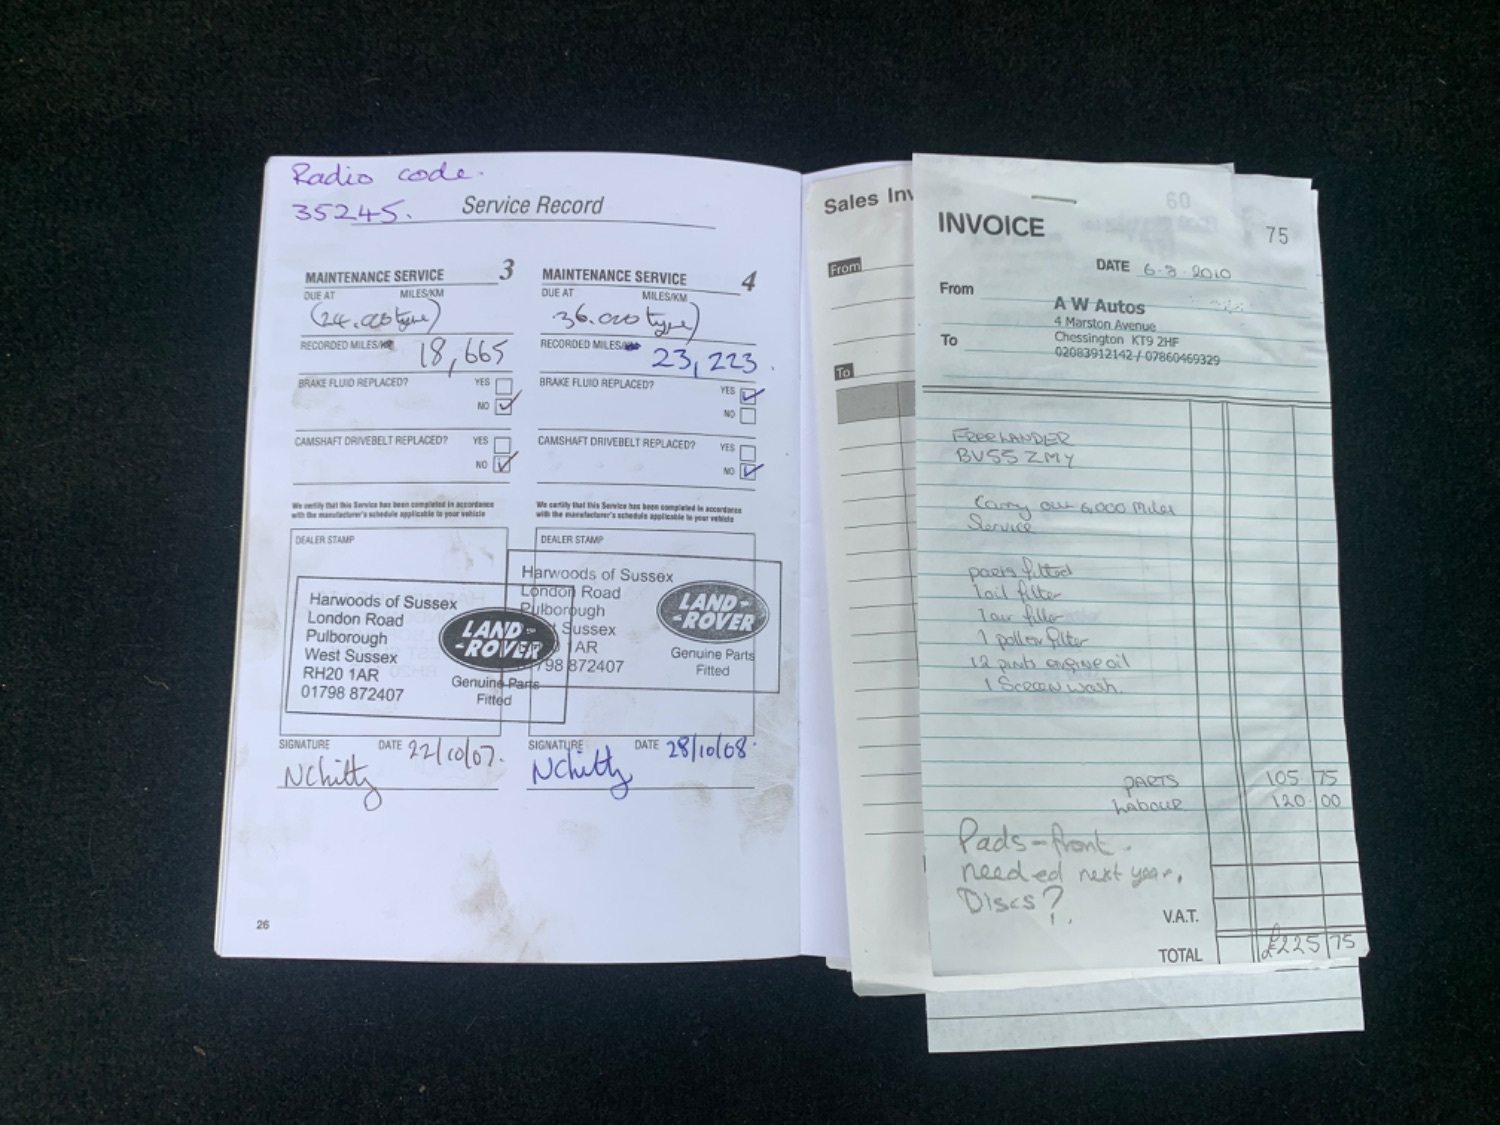 Radio code.
35245.
Service Record
MAINTENANCE SERVICE 3
DUE AT MILES/KM
(24.000 type)
RECORDED MILES/KM 18,665
BRAKE FLUID REPLACED? YES
NO ✓
CAMSHAFT DRIVEBELT REPLACED? YES
NO ✓
We certify that this Service has been completed in accordance
with the manufacturer's schedule applicable to your vehicle
DEALER STAMP
Harwoods of Sussex
London Road
Pulborough
West Sussex
RH20 1AR
01798 872407
LAND-
-ROVER
Genuine Parts
Fitted
SIGNATURE DATE 22/10/07.
NChitty
26
MAINTENANCE SERVICE 4
DUE AT MILES/KM
36.000 type)
RECORDED MILES/ 23,223.
BRAKE FLUID REPLACED? YES ✓
NO
CAMSHAFT DRIVEBELT REPLACED? YES
NO ✓
We certify that this Service has been completed in accordance
with the manufacturer's schedule applicable to your vehicle
DEALER STAMP
Harwoods of Sussex
London Road
Pulborough
t Sussex
1AR
798 872407
LAND-
-ROVER
Genuine Parts
Fitted
SIGNATURE DATE 28/10/08.
NChitty
Sales Inv
From
To
60
INVOICE 75
DATE 6-3-2010
From
A W Autos
4 Marston Avenue
To Chessington KT9 2HF
02083912142 / 07860469329
FREELANDER
BV55 ZMY
Carry out 6,000 Miles
Service
parts fitted
1 oil filter
1 air filter
1 pollen filter
12 pints engine oil
1 Screen wash.
PARTS 105.75
Labour 120.00
Pads - front.
needed next year.
Discs?
V.A.T.
TOTAL £225 75